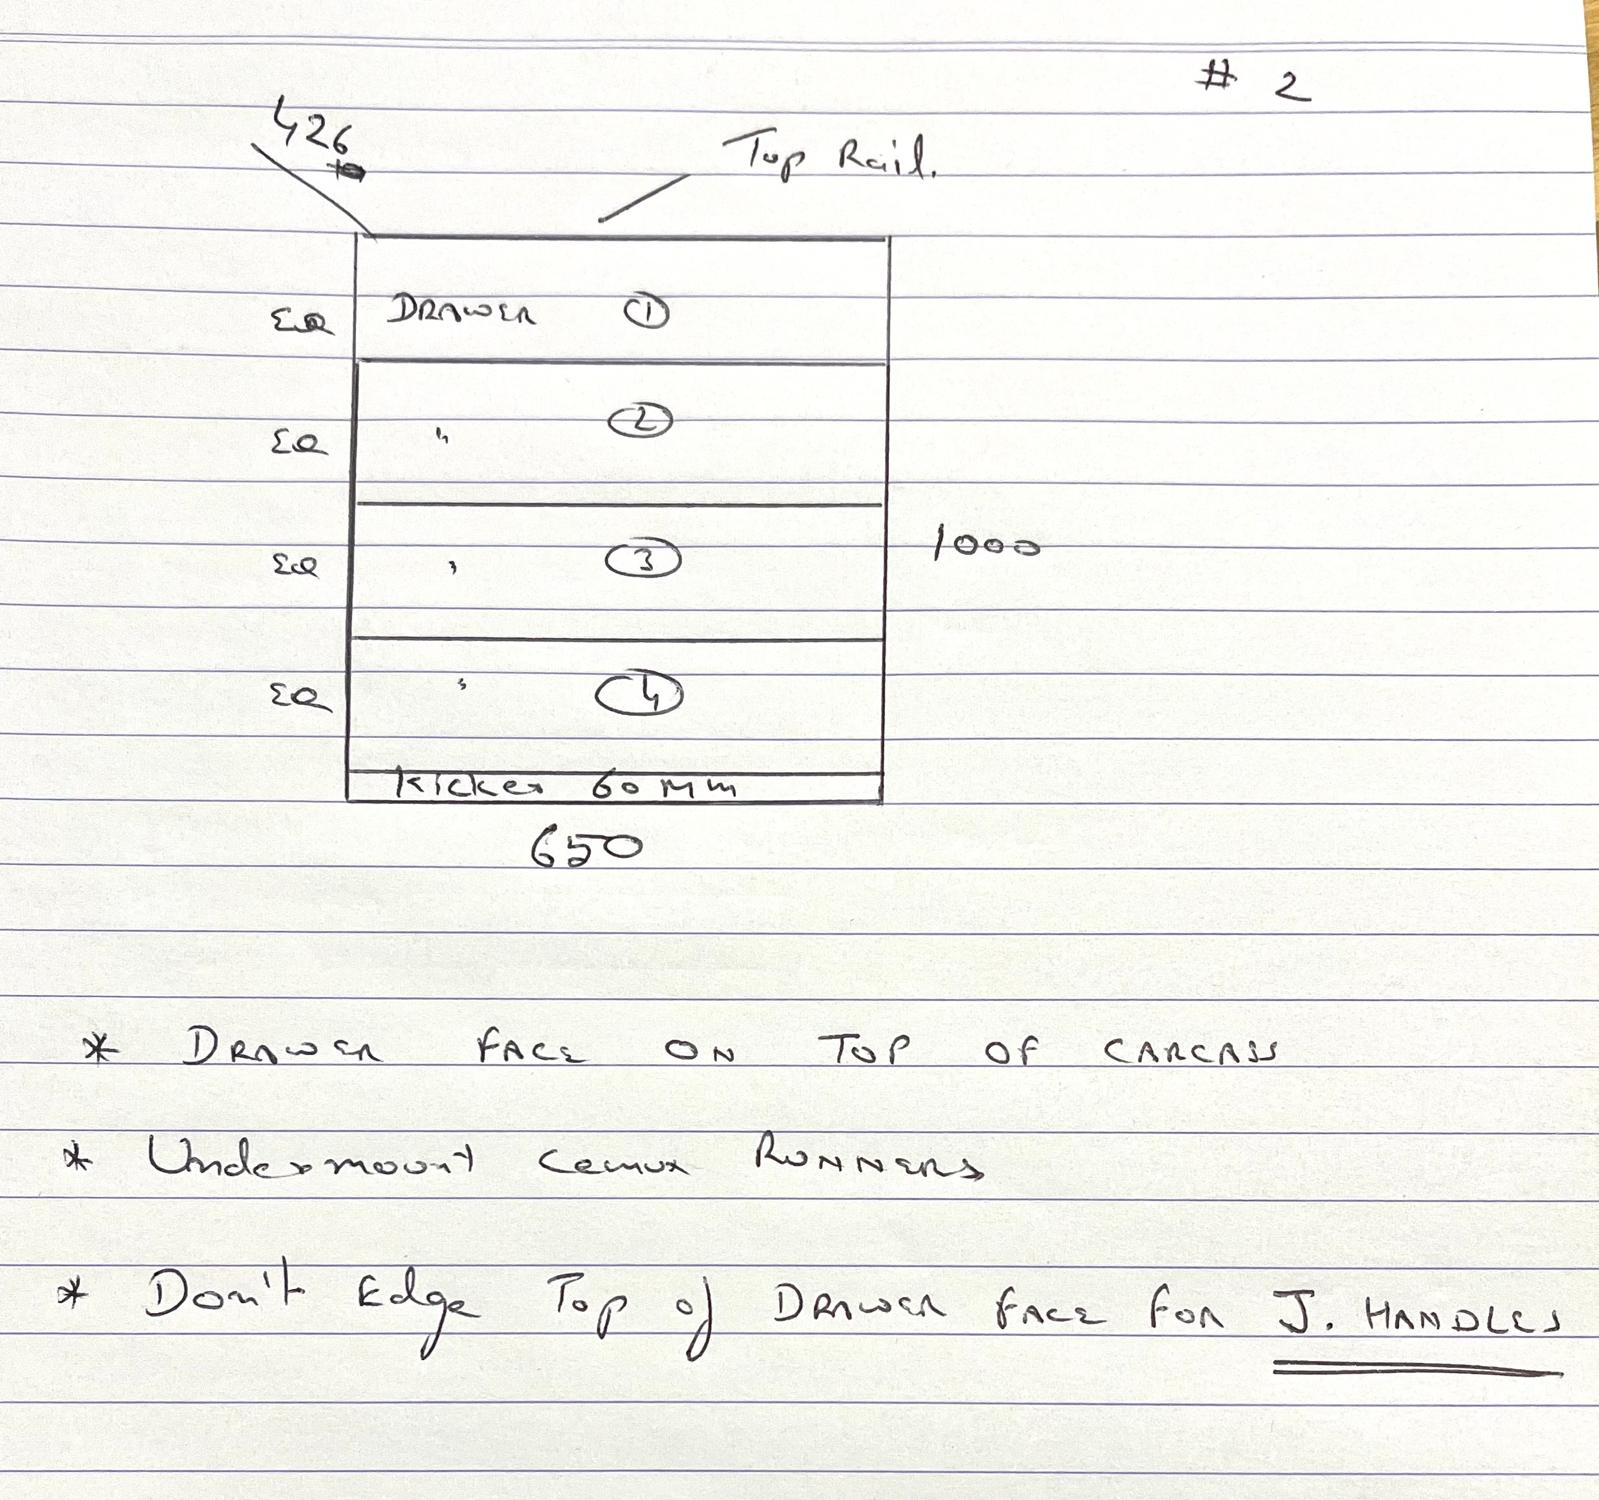 # 2
426
Top Rail.
EQ DRAWER 1
EQ " 2
EQ " 3
1000
EQ " 4
Kicker 60 mm
650
* DRAWER FACE ON TOP OF CARCASS
* Undermount RUNNERS
* Don't Edge Top of DRAWER FACE FOR J. HANDLES